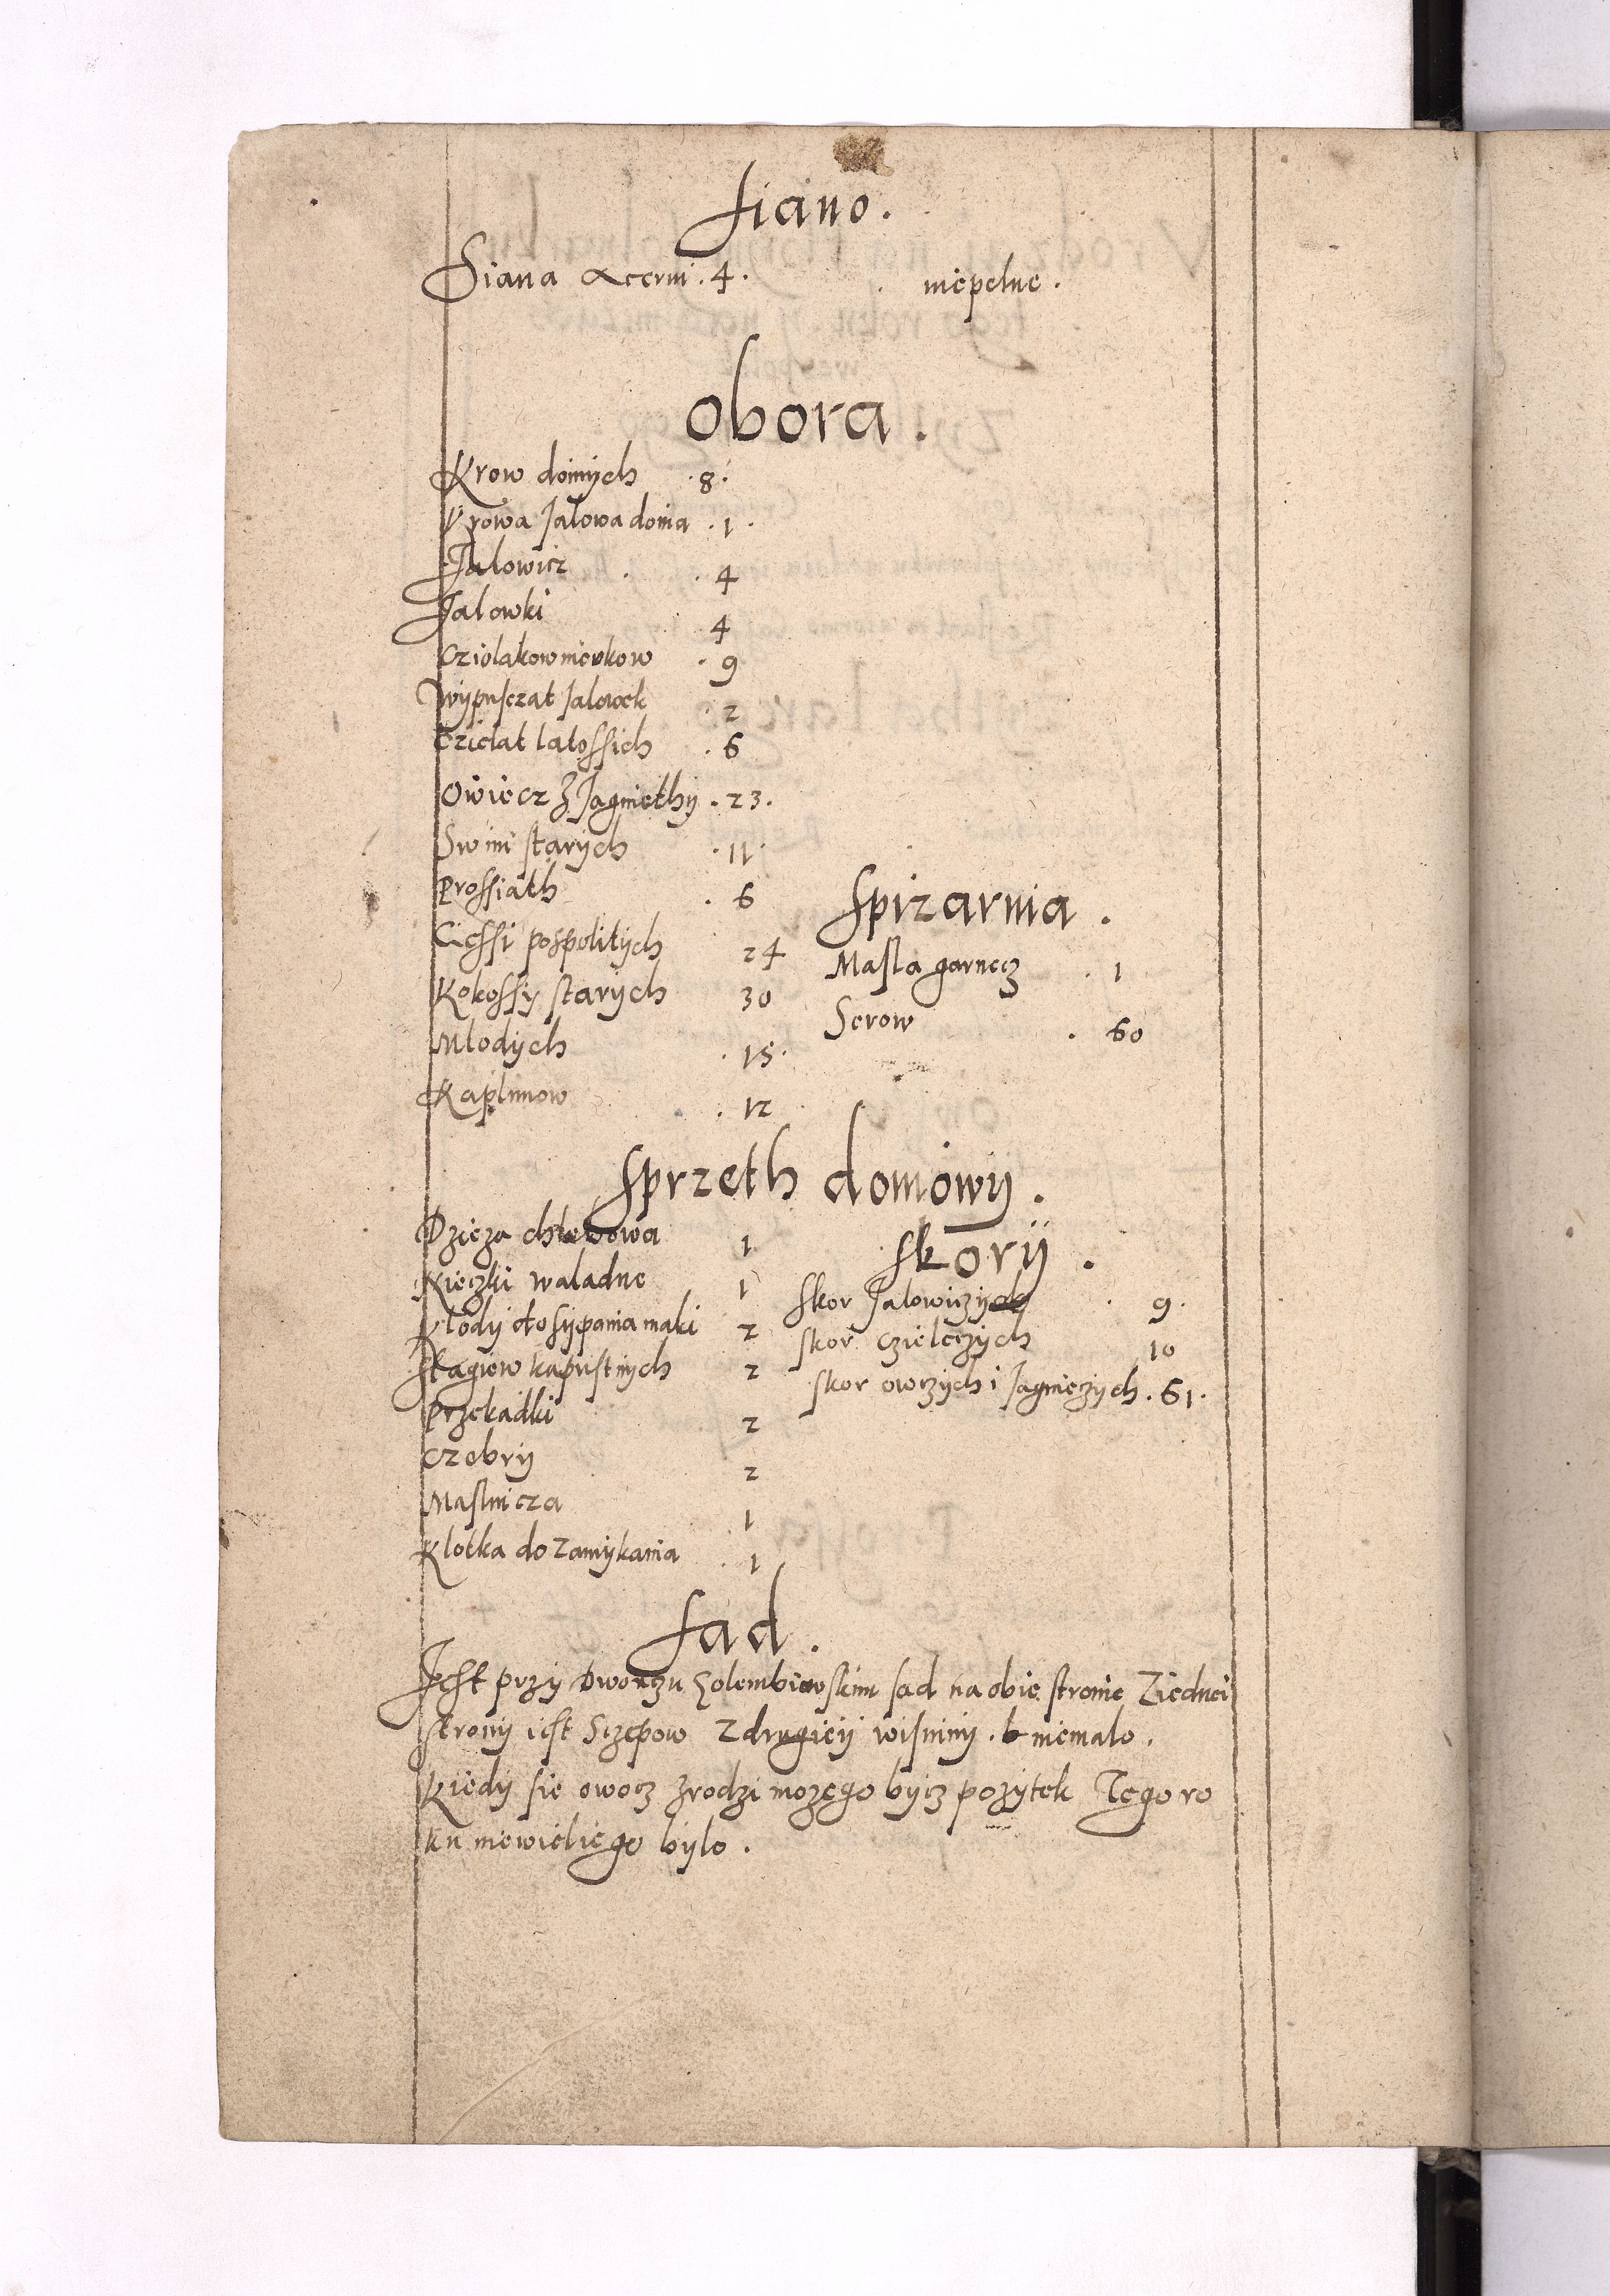 Siano.
Siana Accrui . 4 . niepelne .
obora .
Krow doinych . 8 .
Krowa Jalowa doina . 1 .
Jalowicz . 4
Jalowki 4
Cziolakow nierkow . 9
Wypusczat Jalowek . 2
Czielat latossich . 6
Owiecz z Jagniethy . 23 .
Swini starych . 11 .
Prossiath . 6
Giessi pospolitych 24
Kokossy starych 30
Mlodych . 15 .
Kaplunow . 12
Spizarnia .
Masla garnecz . 1
Serow . 60
Sprzeth domowy .
Dzieza chlebowa 1
Nieczki waladne 1
Klody do sypania maki 2
Stagiew kapustnych 2
Przekadki 2
Czebry 2
Maslnicza 1
Klotka do zamykania 1
Skory .
Skor Jalowiczych . 9 .
Skor czielczych 10
Skor owczych i Jagnieczych . 61 .
Sad .
Jest przy Dworzu Golembiowskim sad na obie stronie Ziednei
strony iest Sczepow Z drugiey wisniny . niemalo .
Kiedy sie owocz zrodzi moze go bycz pozytek Tego ro
ku niewieliego bylo .